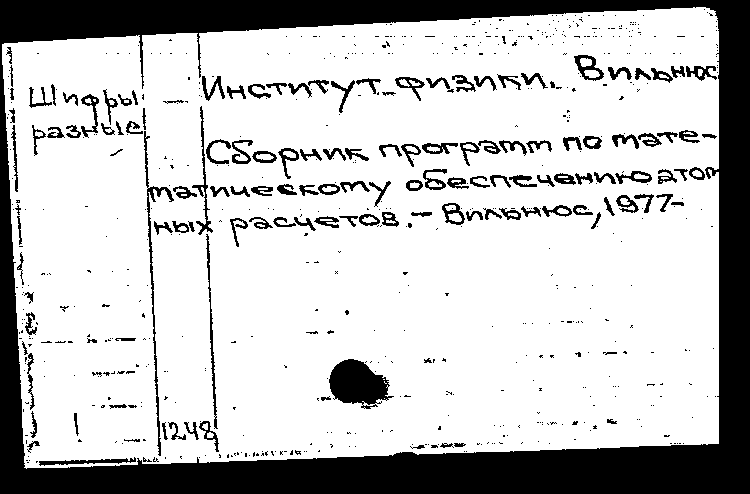 Шифры
разные
Институт физики. Вильнюс
Сборник программ по мате-
матическому обеспечению атом
ных расчетов. – Вильнюс, 1977-
1248